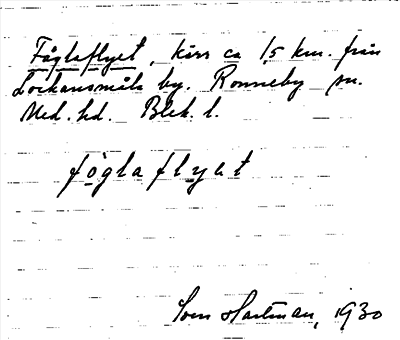 Fåglaflyet, kärr ca 1,5 km. från
Lockansmåla by. Ronneby sn.
Med. hd. Blek. l.
fògla flyet
Sven Hartman, 1930